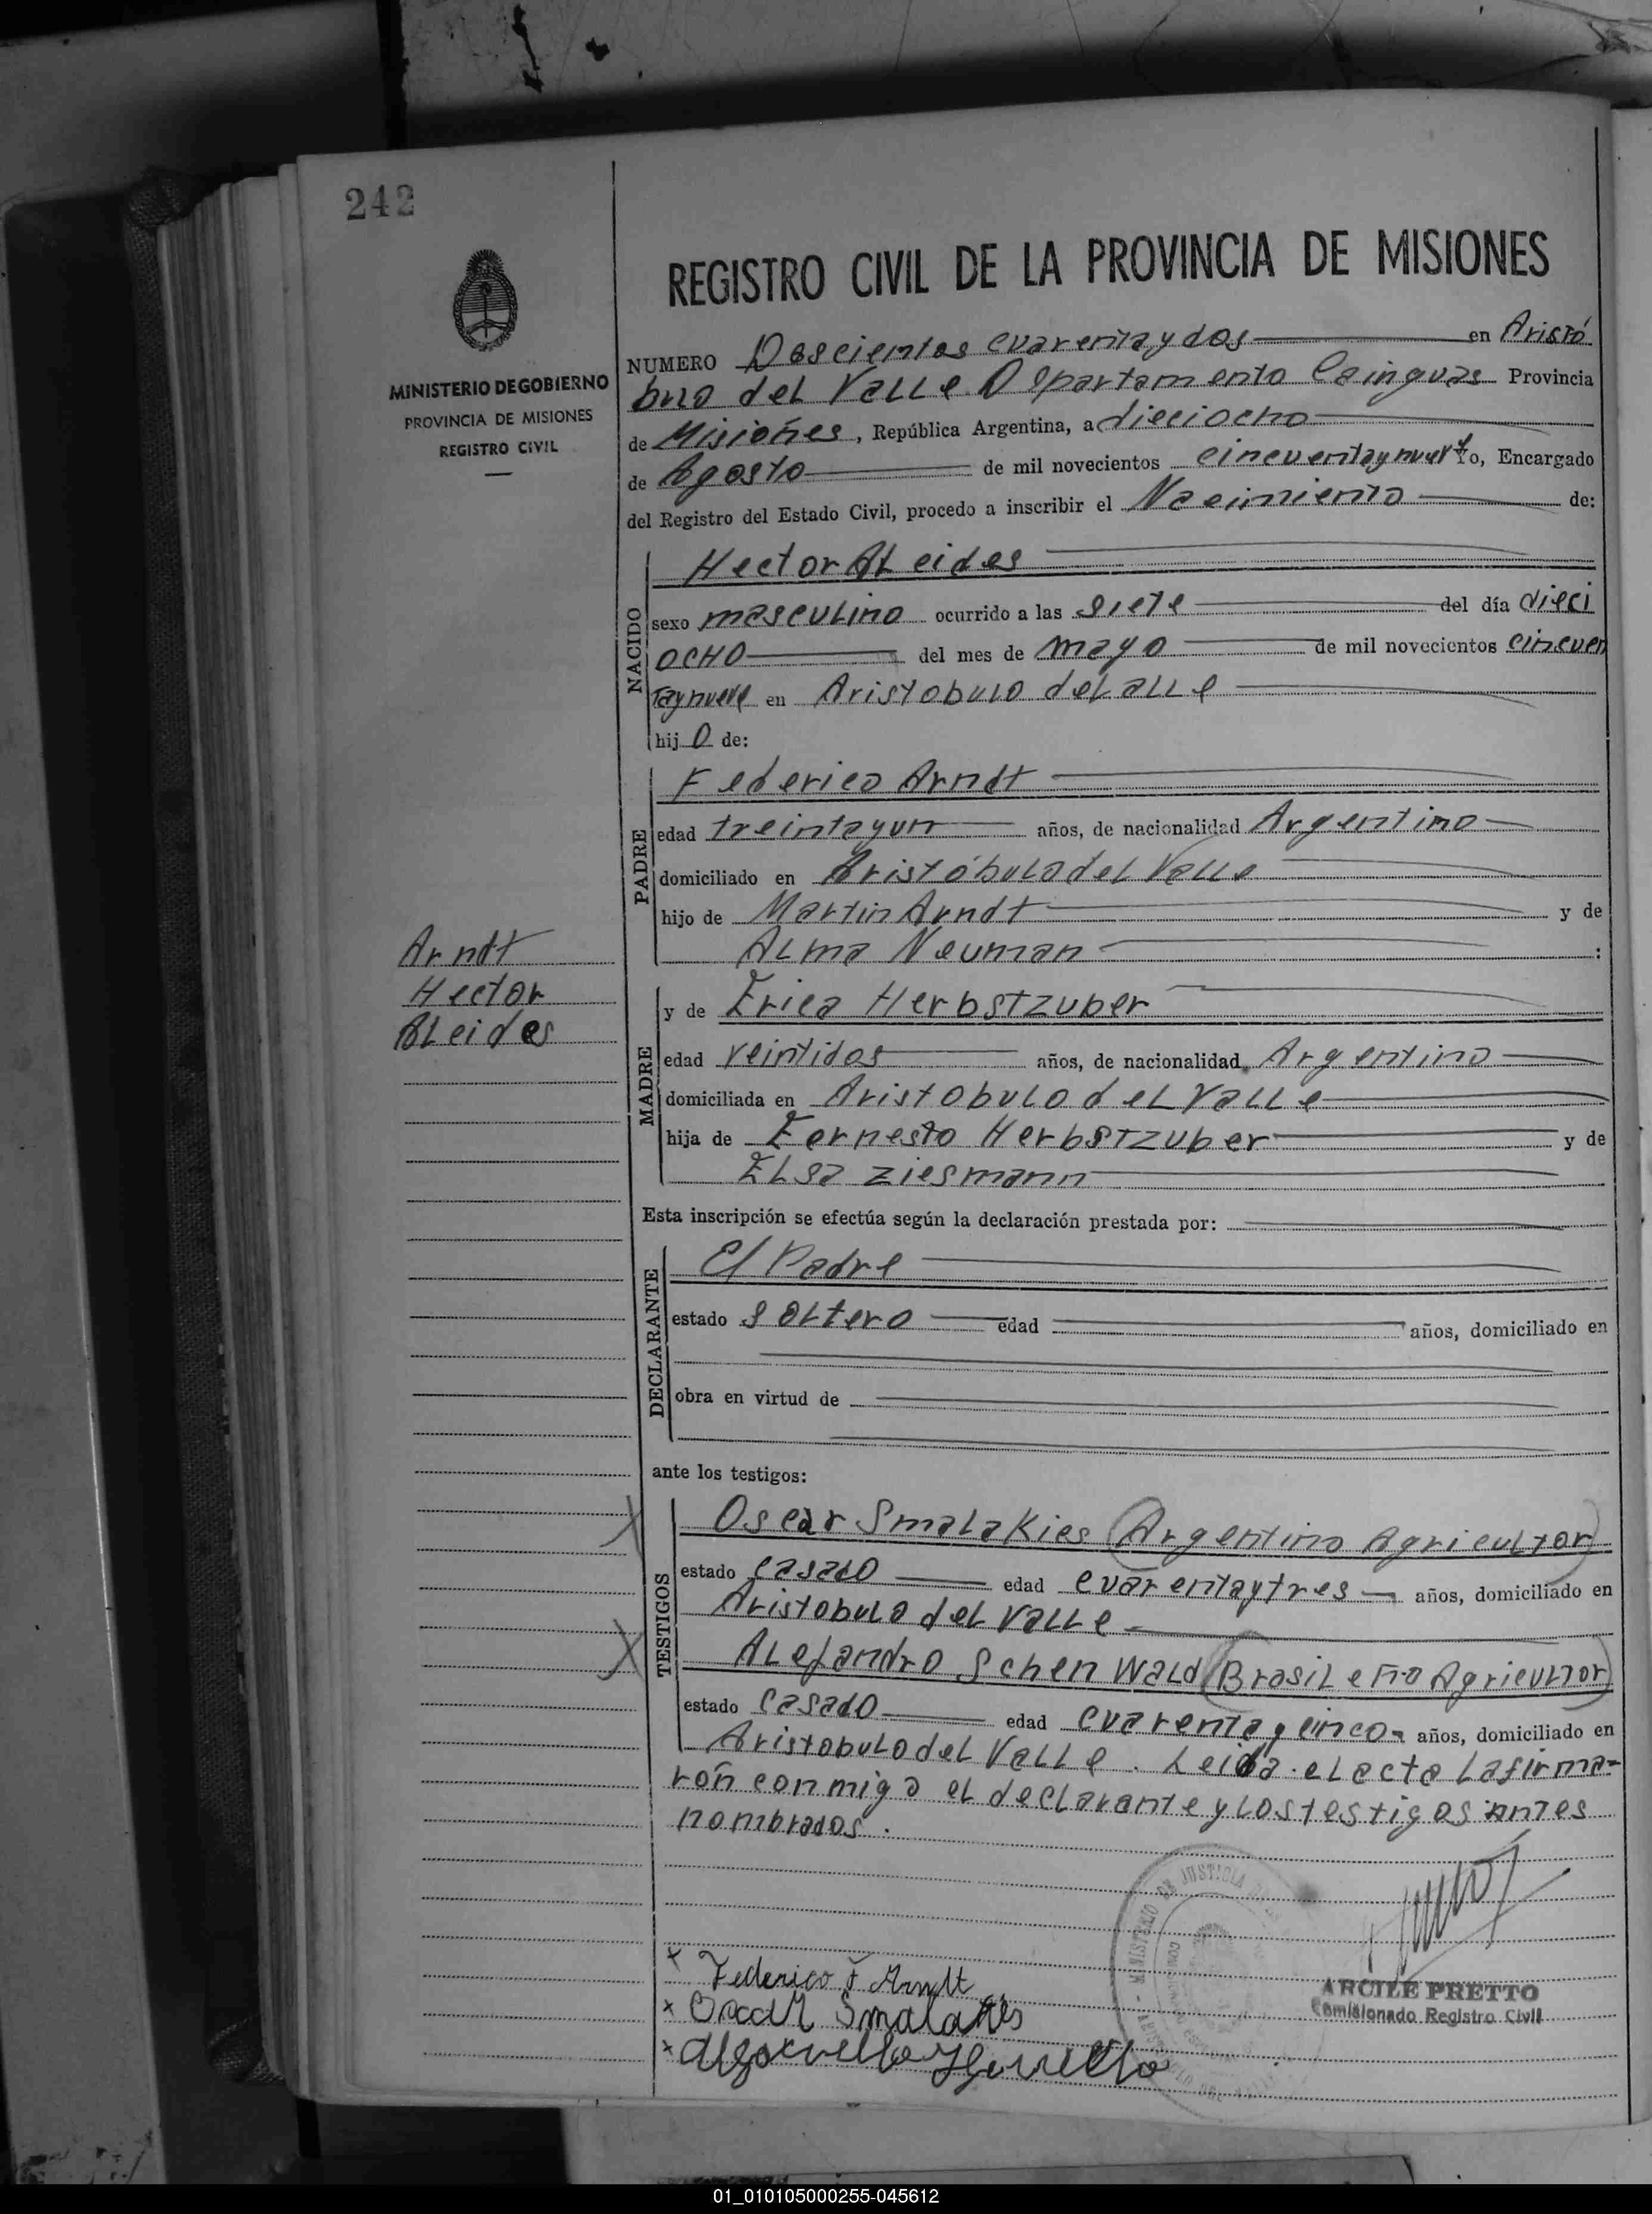 242
REGISTRO CIVIL DE LA PROVINCIA DE MISIONES
MINISTERIO DE GOBIERNO
PROVINCIA DE MISIONES
REGISTRO CIVIL
NUMERO Doscientos cuarentaydos en Aristó
bulo del Valle Departamento Cainguas Provincia
de Misiones, República Argentina, a dieciocho
de Agosto de mil novecientos cincuentaynueve Yo, Encargado
del Registro del Estado Civil, procedo a inscribir el Nacimiento de:
NACIDO
Hector ALcides
sexo masculino ocurrido a las siete del día dieci
ocho del mes de mayo de mil novecientos cincuen
taynueve en Aristobulo del alle
hij o de:
PADRE
Federico Arndt
edad treintayun años, de nacionalidad Argentino
domiciliado en Aristóbulo del Valle
hijo de Martin Arndt y de
ALma Neuman :
Arndt
Hector
ALcides
MADRE
y de Erica Herbstzuber
edad veintidos años, de nacionalidad Argentina
domiciliada en Aristobulo del Valle
hija de Eernesto Herbstzuber y de
ELsa Ziesmann
Esta inscripción se efectúa según la declaración prestada por:
DECLARANTE
El Padre
estado soltero edad años, domiciliado en
obra en virtud de
ante los testigos:
TESTIGOS
Oscar Smalakies (Argentino Agricultor)
estado casado edad cuarentaytres años, domiciliado en
Aristobulo del Valle
ALejandro Schen Wald (Brasileño Agricultor)
estado casado edad cuarenta y cinco años, domiciliado en
Aristobulo del Valle. Leida el acta la firma-
ron conmigo el declarante y los testigos antes
nombrados.
x Federico F Arndt
x Oscar Smalakies
ARCILE PRETTO
Comisionado Registro Civil
MINISTERIO DE JUSTICIA
01_010105000255-045612